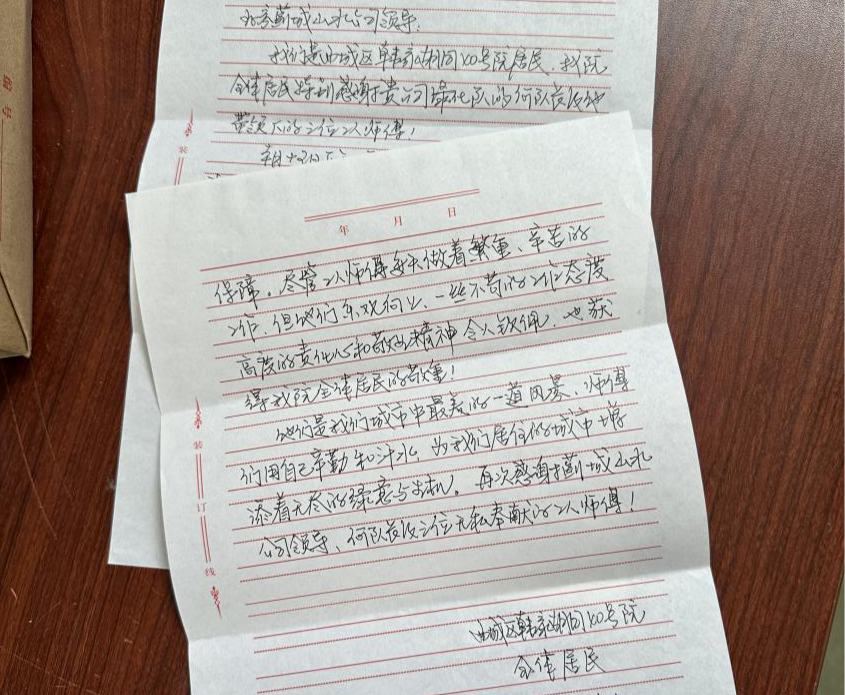 北京蓟城山水公司领导:
我们是西城区韩家胡同40号院居民,我院
全体居民特别感谢贵公司绿化队的何队长及他
带领下的三位工人师傅!
年 月 日
保障。尽管工人师傅每天做着繁重、辛苦的
工作,但他们乐观向上、一丝不苟的工作态度
高度的责任心和敬业精神令人钦佩,也获
得我院全体居民的敬重!
他们是我们城市中最美的一道风景,师傅
们用自己辛勤和汗水,为我们居住的城市增
添着无尽的绿意与生机。再次感谢蓟城山水
公司领导、何队长及三位无私奉献的工人师傅!
西城区韩家胡同40号院
全体居民
装
装
订
线